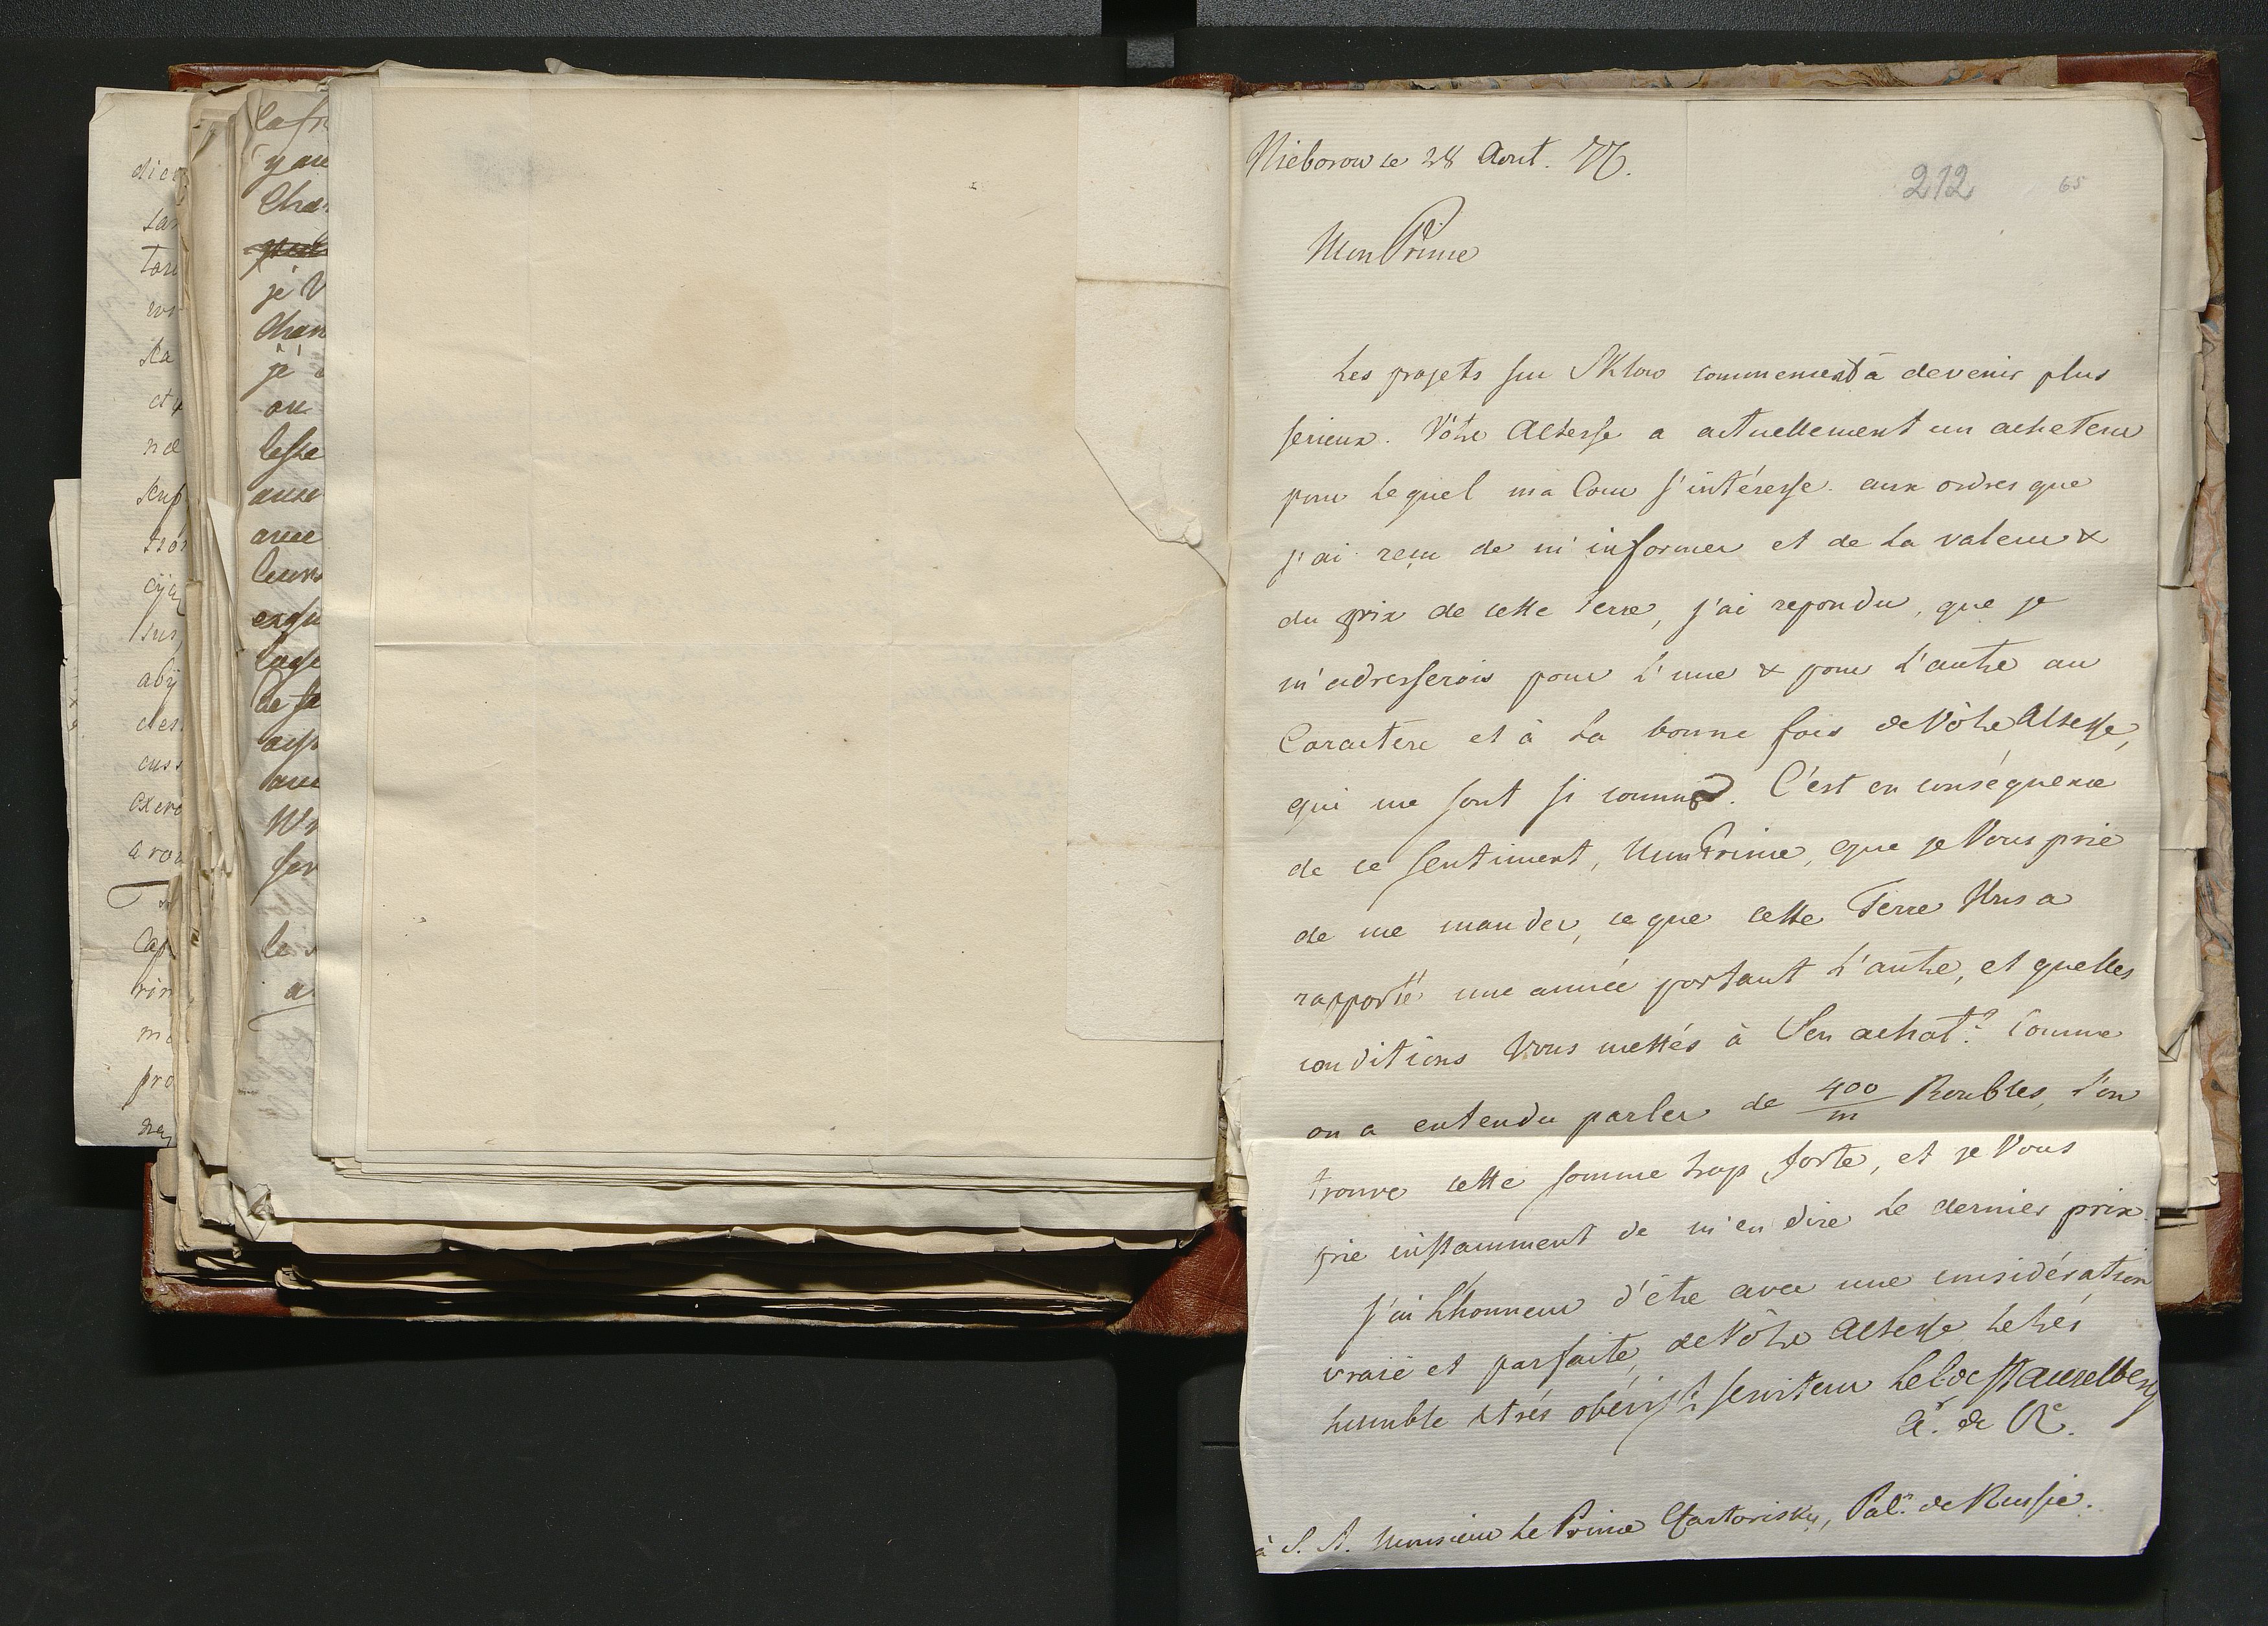 Nieborow ce 28 Aout. 76.
212 65
Mon Prince
Les projets sur Sklow commencent à devenir plus
serieux. Vôtre Altesse a actuellement un acheteur
pour lequel ma Cour s'intéresse. aux ordres que
j'ai reçu de m'informer et de la valeur &
du prix de cette Terre, j'ai repondu, que je
m'adresserois pour l'une & pour l'autre au
Caractere et à la bonne fois de Vôtre Altesse,
qui me sont si connus. C'est en conséquence
de ce sentiment, Mon Prince, que je Vous prie
de me mander, ce que cette Terre Vous a
rapporté une année portant l'autre, et quelles
conditions Vous mettés à Son achat? Comme
on a entendu parler de 400/m Roubles, l'on
trouve cette somme trop forte, et je Vous
prie instamment de m'en dire le dernier prix.
J'ai l'honneur d'être avec une considération
vraie et parfaite, de Vôtre Altesse le trés
humble & trés obéisst serviteur le C. de Stackelberg
Ar. de Re.
à S. A. Monsieur le Prince Czartorisky, Paln. de Russie.
dico
la fr
y au
Cha
je V
Chan
je
ou
leste
aussi
avec
leurs